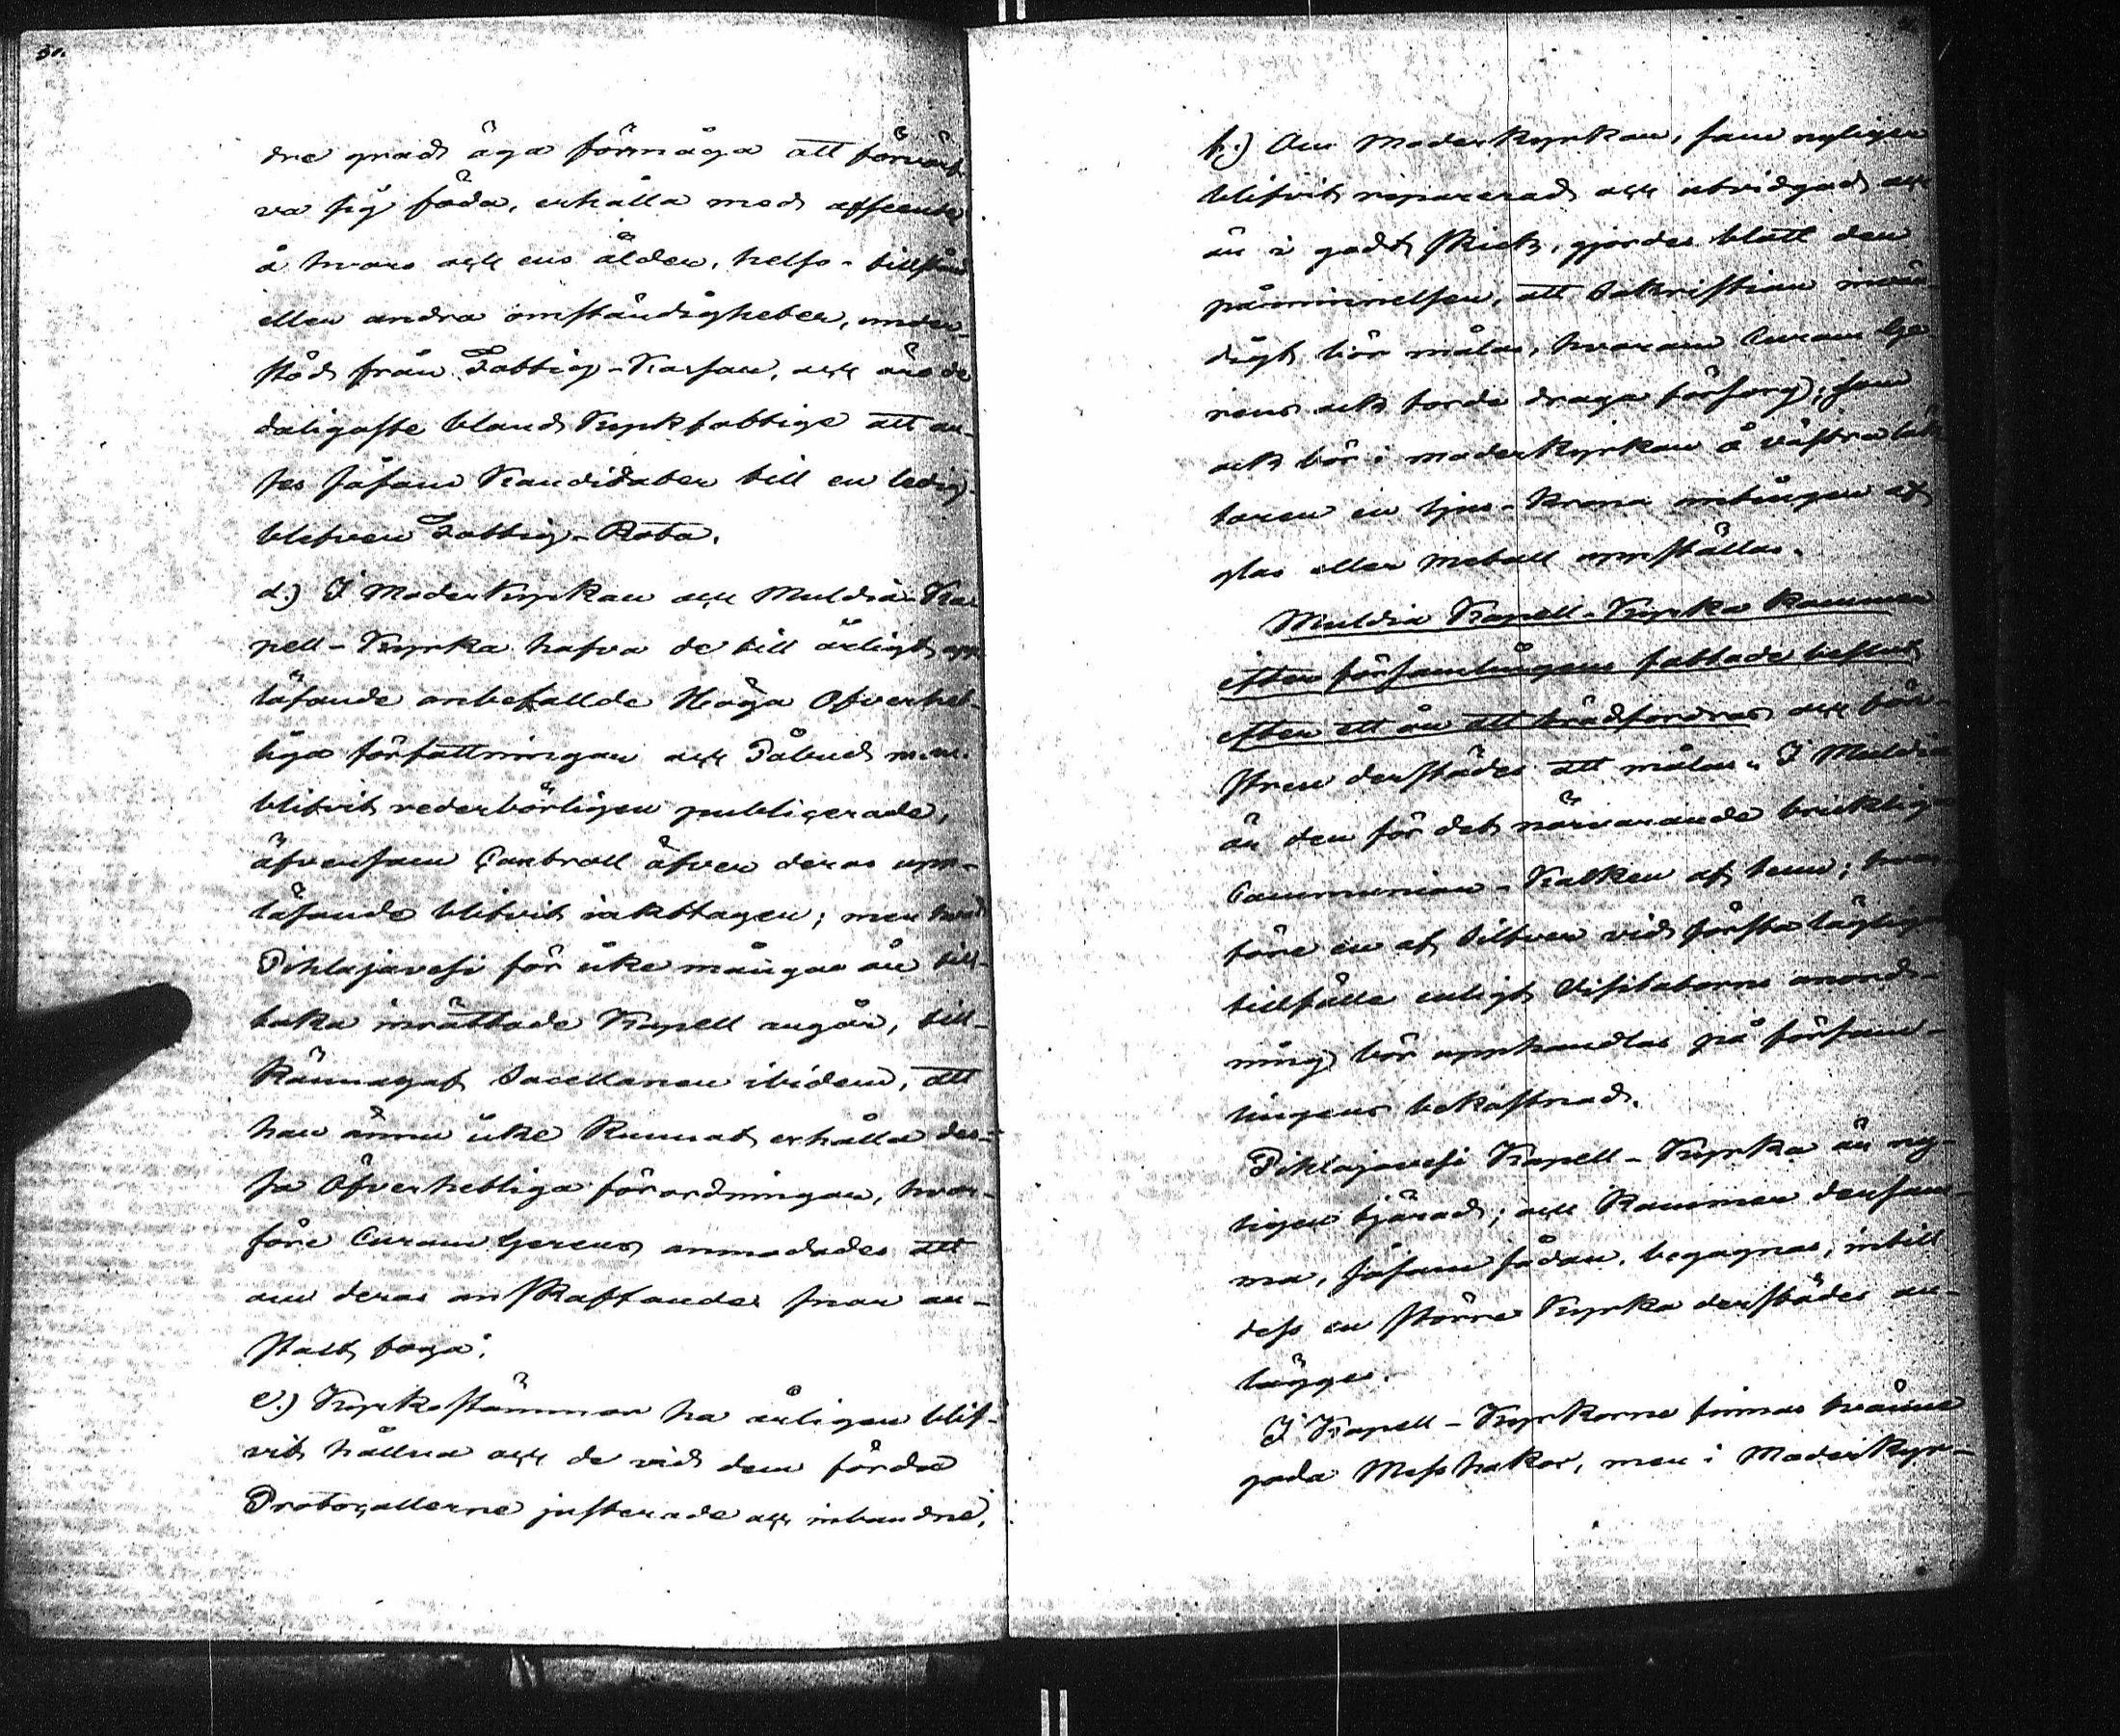 50.
dre grad äga förmåga att förvärf-
va sig föda, erhålla med afseende
å hvars och ens ålder, helso-tillstånd
eller andra omständigheter, under-
stöd från Fattig-Kassan, och äro de
daligaste bland Kyrkfattige att an-
ses såsom Kandidater till en ledig-
blifven Fattig-Rota.
d.) I Moderkyrkan och Muldia Ka-
pell-Kyrka hafva de till årligt upp-
läsande anbefallde Höga Öfverhet-
liga författningar och Påbud m.m.
blifvit vederbörligen publicerade,
äfvensom Controll öfver deras upp-
läsande blifvit iakttagen; men hvad
Pihlajavesi för icke många år till-
baka inrättade Kapell angår, till-
kännagaf Sacellanen ibidem, att
han ännu icke kunnat erhålla des-
sa Öfverhetliga förordningar, hvar-
före Curam Gerens anmodades att
om deras anskaffande snar an-
stalt foga.
e.) Kyrkostämmor ha årligen blif-
vit hållna och de vid dem förda
Protocollerne justerade och inbundne.
f.) Om Moderkyrkan, som nyligen
blifvit reparerad och utvidgad och
är i godt skick, gjordes blott den
påminnelsen, att Sakristian invän-
digt bör målas, hvarom Curam Ge-
rens ock torde draga försorg; som
ock bör i moderkyrkan å västra läk-
taren en ljus-krona antingen af
glas eller metall uppställas.
Muldia Kapell-Kyrka kommer
efter församlingens fattade beslut
efter ett år att brädfordras och fön-
stren derstädes att målas. I Muldia
är den för det närvarande brukliga
Communion-Kalken af tenn; hvar-
före en af Silfver vid första läglig
tillfälle enligt Visitators anord-
ning bör upphandlas på församl-
lingens bekostnad.
Pihlajavesi Kapell-Kyrka är ny-
ligen tjärad; och kommer densam-
ma, såsom sådan, begagnas, intill
dess en större Kyrka derstädes an-
lägges.
I Kapell-Kyrkorne finnas tvänne
goda Messhakar, men i Moderkyr-